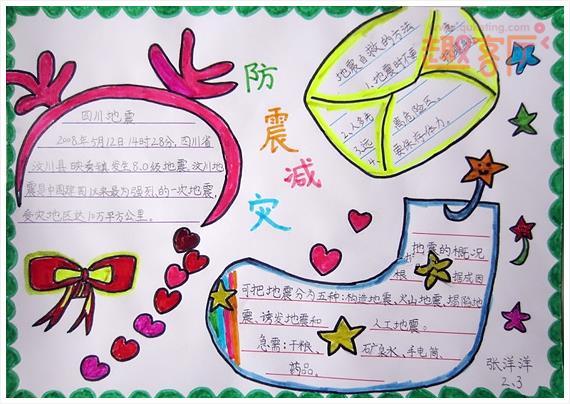 防震减灾
四川地震
2008年5月12日14时28分,四川省
汶川县映秀镇发生8.0级地震,汶川地
震是中国建国以来最为强烈的一次地震,
受灾地区达10万平方公里。
地震自救的方法
1.地震时不要
2.人多先
3.远离危险区。
4.要保存体力。
地震的概况
根据成因
可把地震分为五种:构造地震、火山地震、塌陷地
震、诱发地震和人工地震。
急需:干粮、矿泉水、手电筒、
药品。
张洋洋
2、3
趣客网